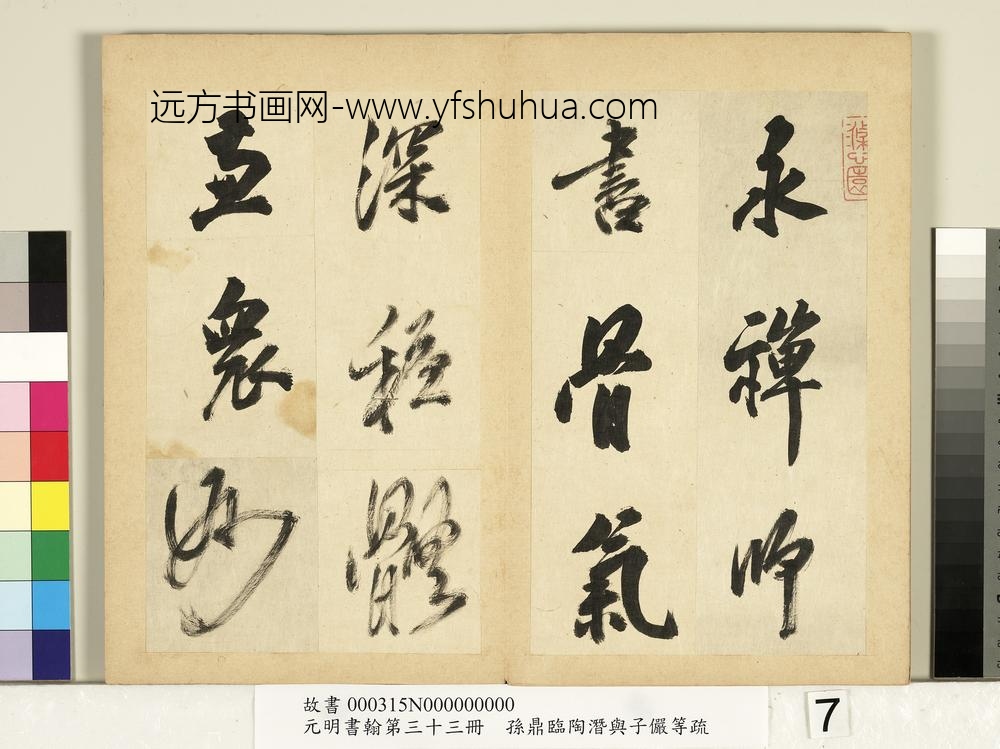 远方书画网-www.yfshuhua.com
永禪師
書骨氣
深穩體
並眾妙
故書 000315N000000000
元明書翰第三十三冊 孫鼎臨陶潛與子儼等疏
7